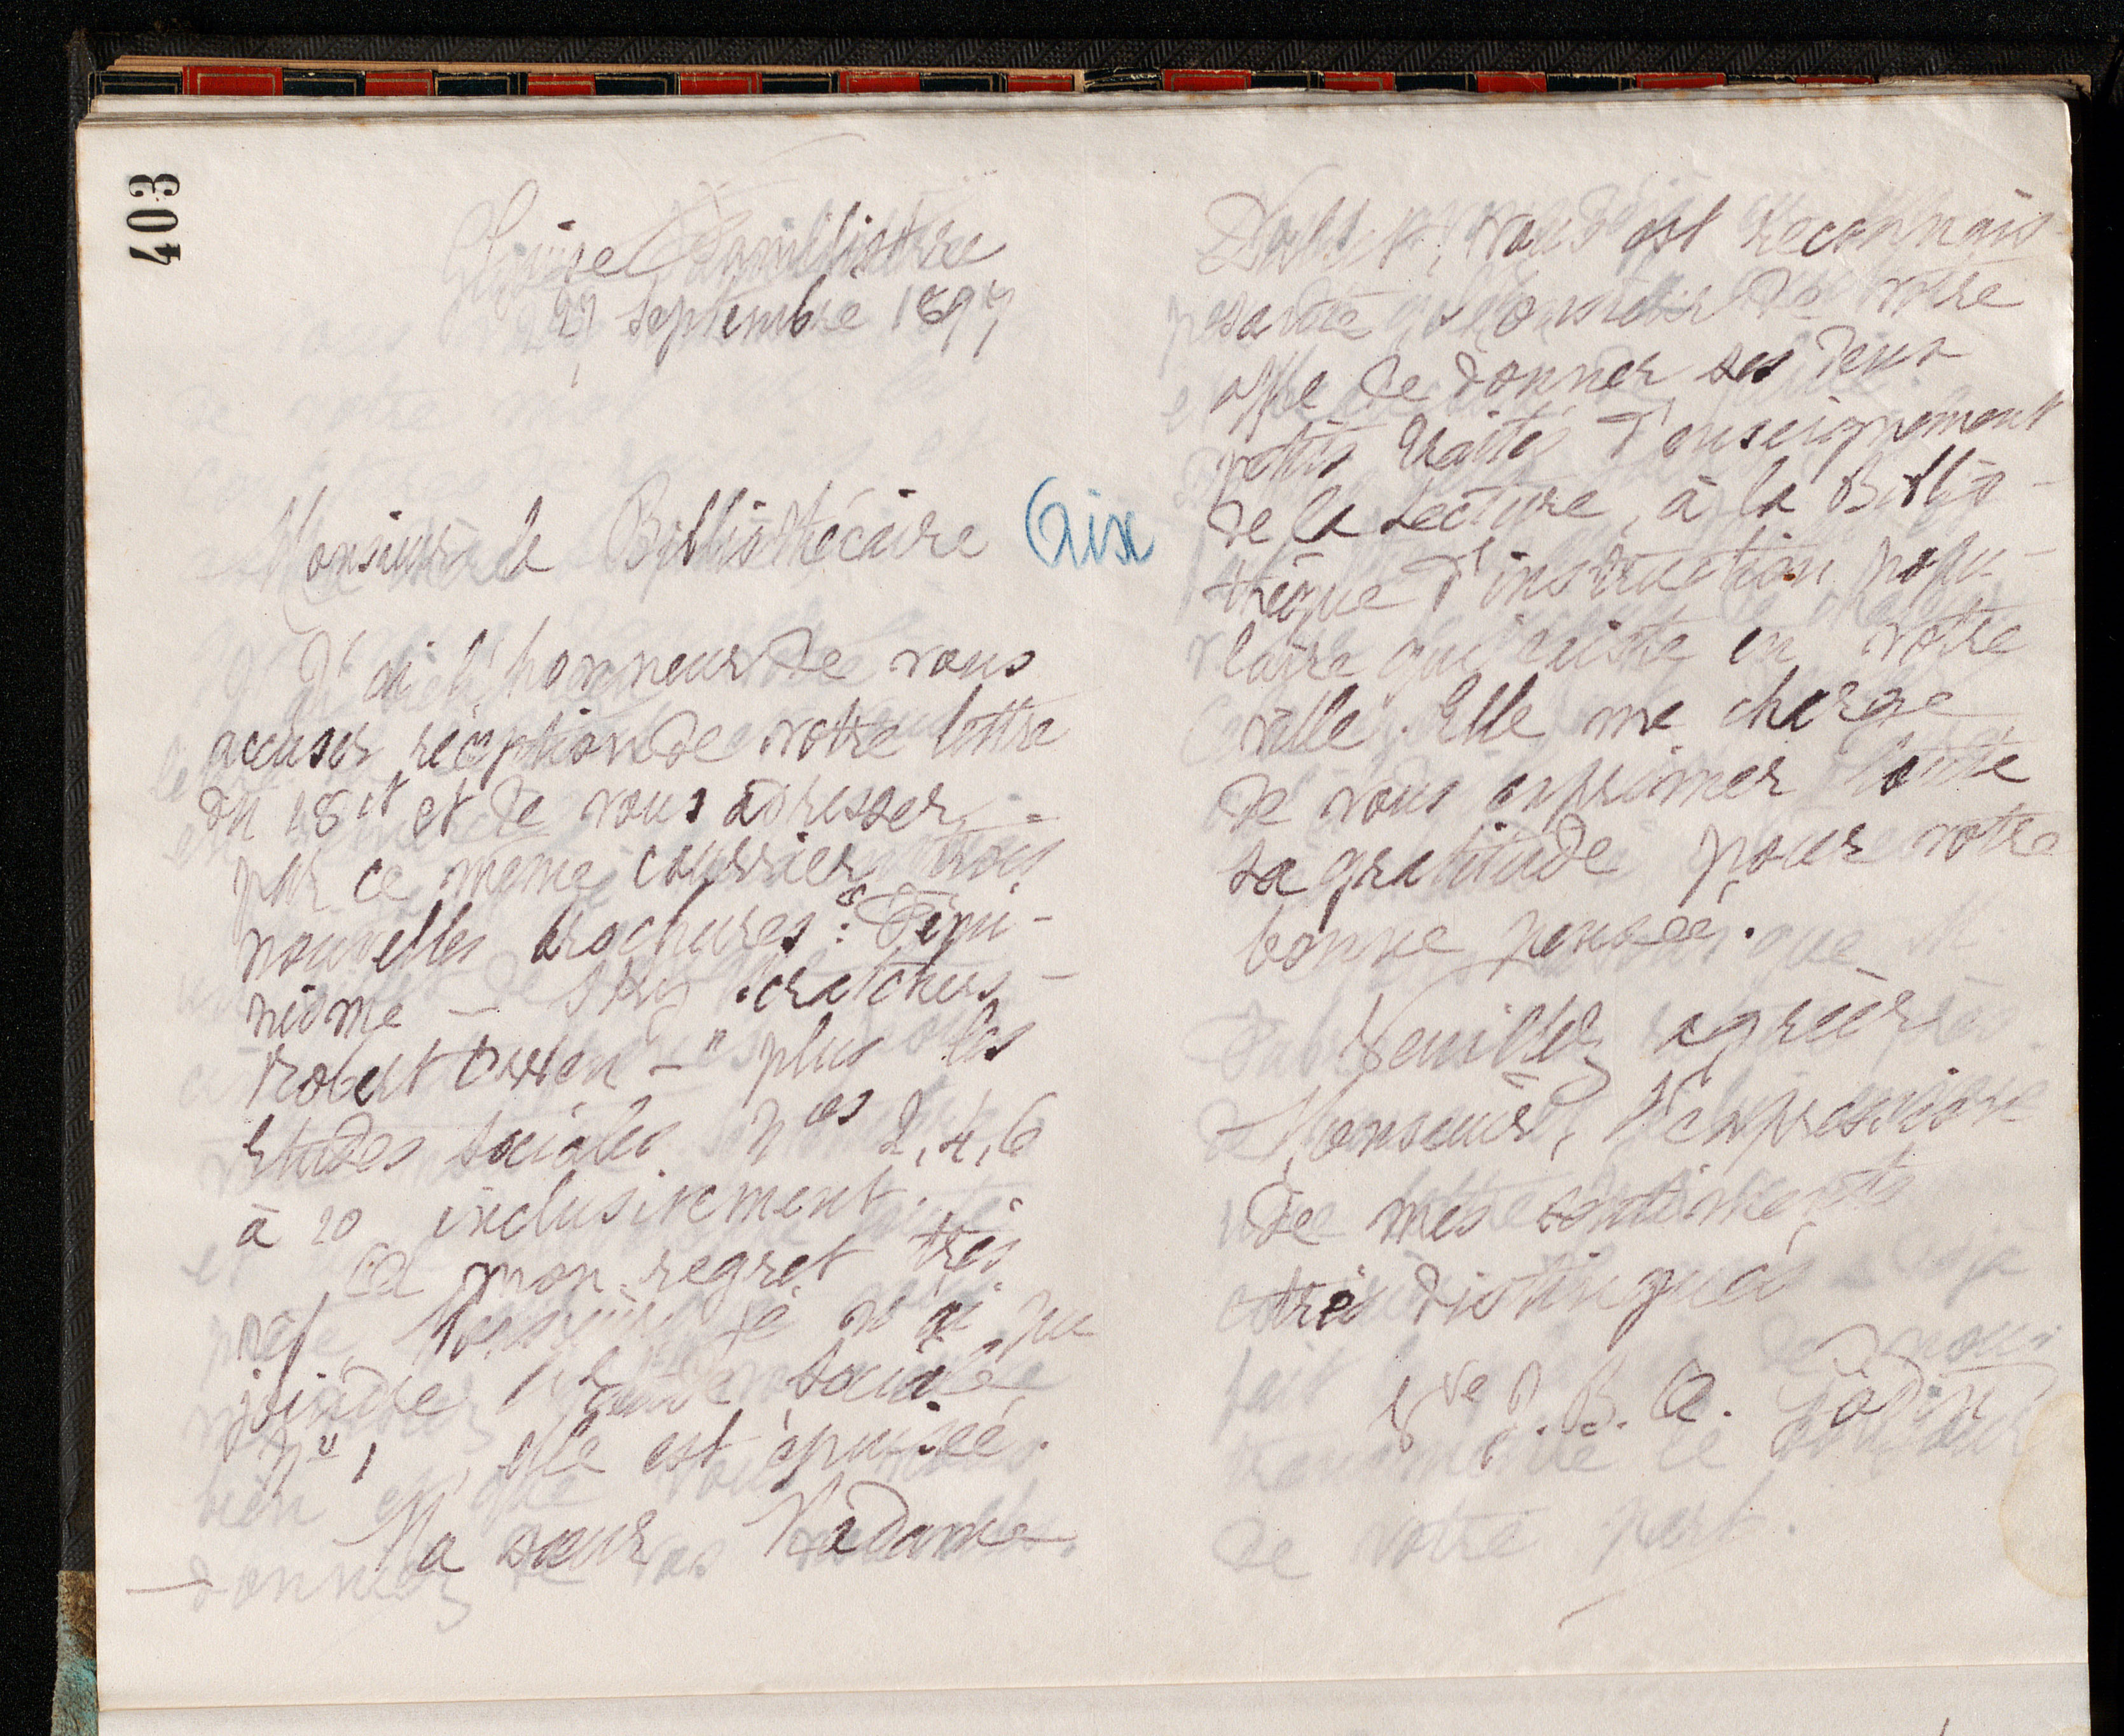 403
Guise Familistère
29 septembre 1897
Monsieur le Bibliothécaire
Aix
J'ai l'honneur de vous
accuser réception de votre lettre
du 18 ct et de vous adresser
par ce même courrier trois
nouvelles brochures : "Fémi-
nisme —
Robert Owen —" plus les
Etudes sociales nos 2, 4, 6
à 20 inclusivement.
A mon regret très
vif, Monsieur, je n'ai pu
joindre l'Etude sociale
No 1, elle est épuisée.
Ma sœur Madame
Dallet, vous est reconnais-
sante de votre
offre de donner ses deux
petits traités d'enseignement
de la Lecture, à la Biblio-
thèque d'instruction popu-
laire qui existe en votre
ville. Elle me charge
de vous exprimer toute
sa gratitude pour votre
bonne pensée.
Veuillez agréer
Monsieur, l'expression
de mes sentiments
très distingués
Vve J. B. A. Godin